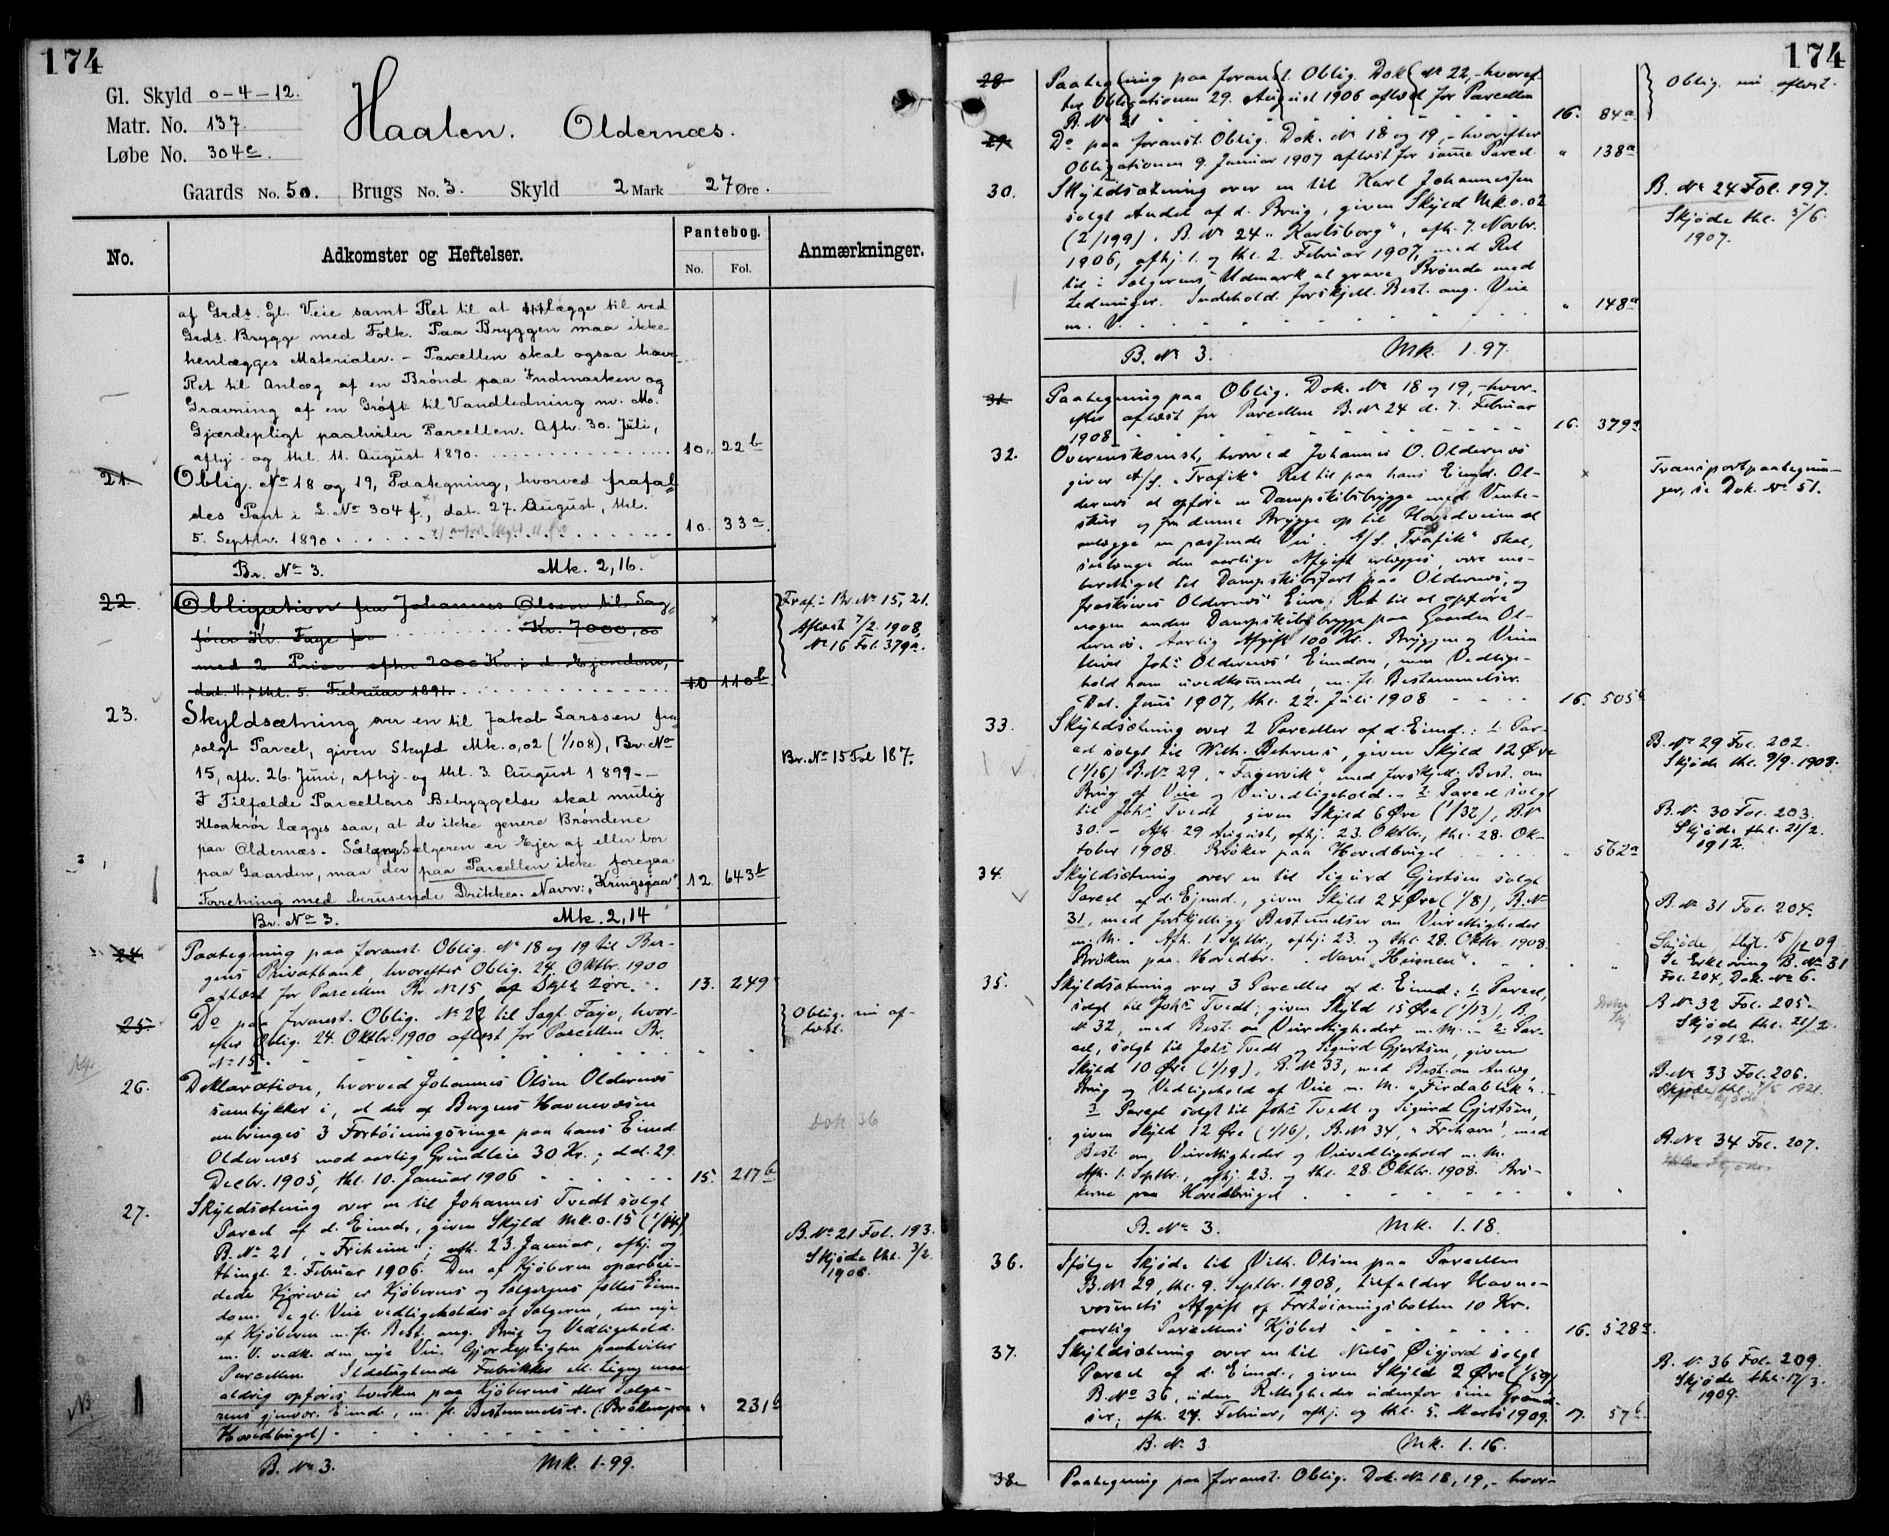 174
Gl. Skyld 0-4-12.
Matr. No. 137.
Løbe No. 304e.
Haalen. Oldernæs.
Gaards No. 50. Brugs No. 3. Skyld 2 Mark 27 Øre.
No. Adkomster og Heftelser. Pantebog. Anmærkninger.
No. Fol.
af Grds. Gl. Veie samt Ret til at lægge til ved
Grds. Brygge med Folk. Paa Bryggen maa ikke
henlægges Materialer. – Parcellen skal ogsaa have
Ret til Anlæg af en Brønd paa Indmarken og
Gravning af en Grøft til Vandledning m. M.
Gjærdepligt paahviler Parcellen. Afh. 30. Juli,
afhj. og thl. 11. August 1890. 10. 22b
21. Oblig. No 18 og 19, Paategning, hvorved frafal-
des Pant i L. No 304 f., dat. 27. August, thl.
5. Septbr. 1890 10. 33a
Br. No 3. Mk. 2,16.
22. Obligation fra Johannes Olsen til Sag-
fører Kr. Faye for Kr. 7000,00
med 2 Prior. efter 2000 Kr. i d. Ejendom,
dat. 4., thl. 5. Februar 1891. 10 110b
Fraf. i Br. No 15, 21.
Aflæst 7/2. 1908,
No 16 Fol. 379a.
23. Skyldsætning over en til Jakob Larssen fra-
solgt Parcel, given Skyld Mk. 0,02 (1/108), Br. No
15, afh. 26. Juni, afhj. og thl. 3. August 1899. –
I Tilfælde Parcellens Bebyggelse skal mulig
Kloakrør lægges saa, at de ikke genere Brøndene
paa Oldernæs. Sålænge Sælgeren er Ejer af eller bor
paa Gaarden, maa der paa Parcellen ikke foregaa
Forretning med berusende Drikke. Navn: "Kringsjaa". 12. 643b
Br. No 15 Fol 187.
Br. No 3. Mk. 2,14
24. Paategning paa foranst. Oblig. No 18 og 19 til Ber-
gens Privatbank, hvorefter Oblig. 24. Oktbr. 1900
aflæst for Parcellen Br. No 15 af Skyld 2 øre. 13. 249
25. Do paa foranst. Oblig. No 22 til Sagf. Faye, hvor-
efter Oblig. 24. Oktbr. 1900 aflæst for Parcellen Br.
No 15. " "
Oblig. nu af-
læst.
26. Deklaration, hvorved Johannes Olsen Oldernæs
samtykker i, at der af Bergens Havnevæsen
anbringes 3 Fortøiningsringe paa hans Eiend.
Oldernæs mod aarlig Grundleie 30 Kr.; dd. 29.
Decbr. 1905, thl. 10. Januar 1906 15. 217b
Dok 36
27. Skyldsætning over en til Johannes Tvedt solgt
Parcel af d. Eiend., given Skyld Mk. 0.15 (1/14)
B. No 21, "Friheim"; afh. 23. Januar, afhj. og
thingl. 2. Februar 1906. Den af Kjøberen oparbei-
dede Kjørevei er Kjøberens og Sælgerens fælles Eien-
dom. De gl. Veie vedligeholdes af Sælgeren, den nye
af Kjøberen m. fl. Best. ang. Brug og Vedligehold.
m. V. vedk. den nye Vei. Gjærdepligten paahviler
Parcellen. Ildelugtende Fabrikker el. Lign. maa
aldrig opføres hverken paa Kjøberens eller Sælge-
rens gjenvær. Eiend., m. fl. Bestemmelser. (Brøken paa
Hovedbruget) " 231b
B. No 21 Fol. 193.
Skjøde thl. 3/2.
1906.
NB.
B. No 3. Mk. 1.99.
174
28. Paategning paa foranst. Oblig. Dok. No 22, – hvoref-
ter Obligationen 29. August 1906 aflæst for Parcellen
B. No 21 16. 84a.
Oblig. nu aflæst.
29. Do paa foranst. Oblig. Dok. No 18 og 19, – hvorefter
Obligationen 9. Januar 1907 aflæst for samme Parcel " 138a
30. Skyldsætning over en til Karl Johannessen
solgt Andel af d. Brug, given Skyld Mk. 0.02
(2/199). B. No 24 "Karlsborg", afh. 7. Novbr.
1906, afhj. 1. og thl. 2. Februar 1907, med Ret
til i Sælgerens Udmark at grave Brønde med
Ledninger. Indehold. forskjell. Best. ang. Veie
m. V. " 148a
B. No 24 Fol. 197.
Skjøde thl. 5/6.
1907.
B. No 3. Mk. 1.97.
31. Paategning paa Oblig. Dok. No 18 og 19, – hvor-
efter aflæst for Parcellen B. No 24 d. 7. Februar
1908 16. 379a
32. Overenskomst, hvorved Johannes O. Oldernæs
giver A/S. "Trafik" Ret til paa hans Eiend. Ol-
dernæs at opføre en Dampskibsbrygge med Vente-
skur og fra denne Brygge op til Hovedveien at
anlægge en passende Vei. A/S. "Trafik" skal,
saalænge den aarlige Afgift erlægges, være ene-
berettiget til Dampskibsfart paa Oldernæs, og
fraskrives Oldernæs' Eiere Ret til at opføre
nogen anden Dampskibsbrygge paa Gaarden Ol-
dernæs. Aarlig Afgift 100 Kr. Bryggen og Veien
bliver Johs Oldernæs' Eiendom, men Vedlige-
hold ham uvedkommende, m. fl. Bestemmelser.
Dat. Juni 1907, thl. 22. Juli 1908 16. 505a
Transportpaategnin-
ger, se Dok. No 51.
33. Skyldsætning over 2 Parceller af d. Eiend.: 1. Par-
cel solgt til Wilh. Behrens, given Skyld 12 Øre
(1/16) B. No 29, "Fagervik" med forskjell. Best. om
Brug af Veie og Veivedligehold. – 2. Parcel solgt
til Johs Tvedt given Skyld 6 Øre (1/32), B. No
30. – Afh. 29 August, afhj. 23. Oktbr., thl. 28. Ok-
tober 1908. Brøker paa Hovedbruget " 562a
B. No 29 Fol. 202.
Skjøde thl. 9/9. 1908.
B. No 30 Fol. 203.
Skjøde thl. 21/2.
1912.
34. Skyldsætning over en til Sigurd Gjertsen solgt
Parcel af d. Ejend., given Skyld 24 Øre (1/8), B. No
31, med forskjellige Bestemmelser om Veirettigheder
m. M. Afh. 1. Septbr., afhj. 23. og thl. 28. Oktbr. 1908.
Brøken paa Hovedbr. Navn "Heimen". " "
B. No 31 Fol. 204.
Skjøde thgl. 5/2 09
Se Erklæring B. No 31
Fol. 204, Dok. No 6.
35. Skyldsætning over 3 Parceller af d. Eiend.: 1. Parcel,
solgt til Johs Tvedt; given Skyld 15 Øre (1/13), B.
No 32, med Best. om Veirettigheder m. M. – 2. Par-
cel, solgt til Johs Tvedt og Sigurd Gjertsen, given
Skyld 10 Øre (1/19), B. No 33, med Best. om Anlæg
Brug og Vedligehold af Veie m. M. "Firdablik". –
3. Parcel solgt til Johs Tvedt og Sigurd Gjertsen,
given Skyld 12 Øre (1/16), B. No 34, "Frihavn", med
Best. om Veirettigheder og Veivedligehold m. M.
Afh. 1. Septbr., afhj. 23. og thl. 28. Oktbr. 1908. Brø-
kerne paa Hovedbruget " "
B. No 32 Fol. 205.
Skjøde thl. 21/2.
1912.
B. No 33 Fol. 206.
B. No 34 Fol. 207.
B. No 3. Mk. 1.18.
36. Ifølge Skjøde til Vilh. Olsen paa Parcellen
B. No 29, thl. 9. Septbr. 1908, tilfalder Havne-
væsenets Afgift af Fortøiningsbolten 10 Kr.
aarlig Parcellens Kjøber 16. 528a.
37. Skyldsætning over en til Niels Øigjord solgt
Parcel af d. Eiend., given Skyld 2 Øre (1/59)
B. No 36, uden Rettigheder udenfor sine Grænd-
ser; afh. 27. Februar, afhj. og thl. 5. Marts 1909. 17. 57b.
B. No 36 Fol. 209.
Skjøde thl. 17/3.
1909.
B. No 3 Mk. 1.16.
38. Paategning paa foranst. Oblig. Dok. No 18, 19, – hvor-